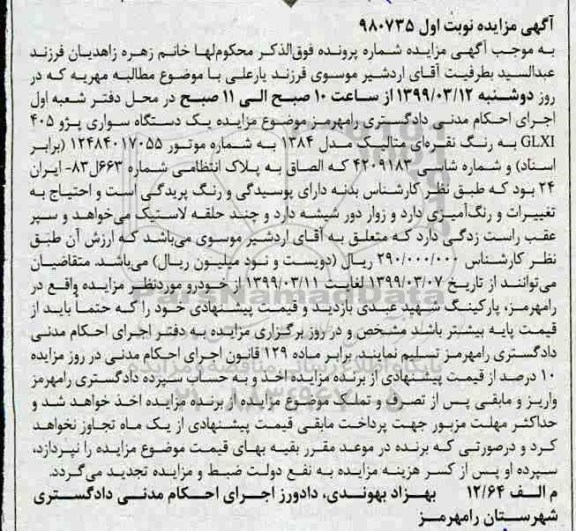 آگهی مزایده نوبت اول ۹۸۰۷۳۵
به موجب آگهی مزایده شماره پرونده فوق‌الذکر محکوم‌لها خانم زهره زاهدیان فرزند
عبدالسید بطرفیت آقای اردشیر موسوی فرزند یارعلی با موضوع مطالبه مهریه که در
روز دوشنبه ۱۳۹۹/۰۳/۱۲ از ساعت ۱۰ صبح الی ۱۱ صبح در محل دفتر شعبه اول
اجرای احکام مدنی دادگستری رامهرمز موضوع مزایده یک دستگاه سواری پژو ۴۰۵
GLXI به رنگ نقره‌ای متالیک مدل ۱۳۸۴ به شماره موتور ۱۲۴۸۴۰۱۷۰۵۵ (برابر
اسناد) و شماره شاسی ۴۲۰۹۱۸۳ که الصاق به پلاک انتظامی شماره ۶۶۳ل۸۳- ایران
۲۴ بود که طبق نظر کارشناس بدنه دارای پوسیدگی و رنگ پریدگی است و احتیاج به
تغییرات و رنگ‌آمیزی دارد و زوار دور شیشه دارد و چند حلقه لاستیک می‌خواهد و سپر
عقب راست زدگی دارد که متعلق به آقای اردشیر موسوی می‌باشد که ارزش آن طبق
نظر کارشناس ۲۹۰/۰۰۰/۰۰۰ ریال (دویست و نود میلیون ریال) می‌باشد. متقاضیان
می‌توانند از تاریخ ۱۳۹۹/۰۳/۰۷ لغایت ۱۳۹۹/۰۳/۱۱ از خودرو موردنظر مزایده واقع در
رامهرمز، پارکینگ شهید عبدی بازدید و قیمت پیشنهادی خود را که حتما باید از
قیمت پایه بیشتر باشد مشخص و در روز برگزاری مزایده به دفتر اجرای احکام مدنی
دادگستری رامهرمز تسلیم نمایند. برابر ماده ۱۲۹ قانون اجرای احکام مدنی در روز مزایده
۱۰ درصد از قیمت پیشنهادی از برنده مزایده اخذ و به حساب سپرده دادگستری رامهرمز
واریز و مابقی پس از تصرف و تملک موضوع مزایده از برنده مزایده اخذ خواهد شد و
حداکثر مهلت مزبور جهت پرداخت مابقی قیمت پیشنهادی از یک ماه تجاوز نخواهد
کرد و درصورتی که برنده در موعد مقرر بقیه بهای قیمت موضوع مزایده را نپردازد،
سپرده او پس از کسر هزینه مزایده به نفع دولت ضبط و مزایده تجدید می‌گردد.
م الف ۱۲/۶۴ بهزاد بهوندی، دادورز اجرای احکام مدنی دادگستری
شهرستان رامهرمز